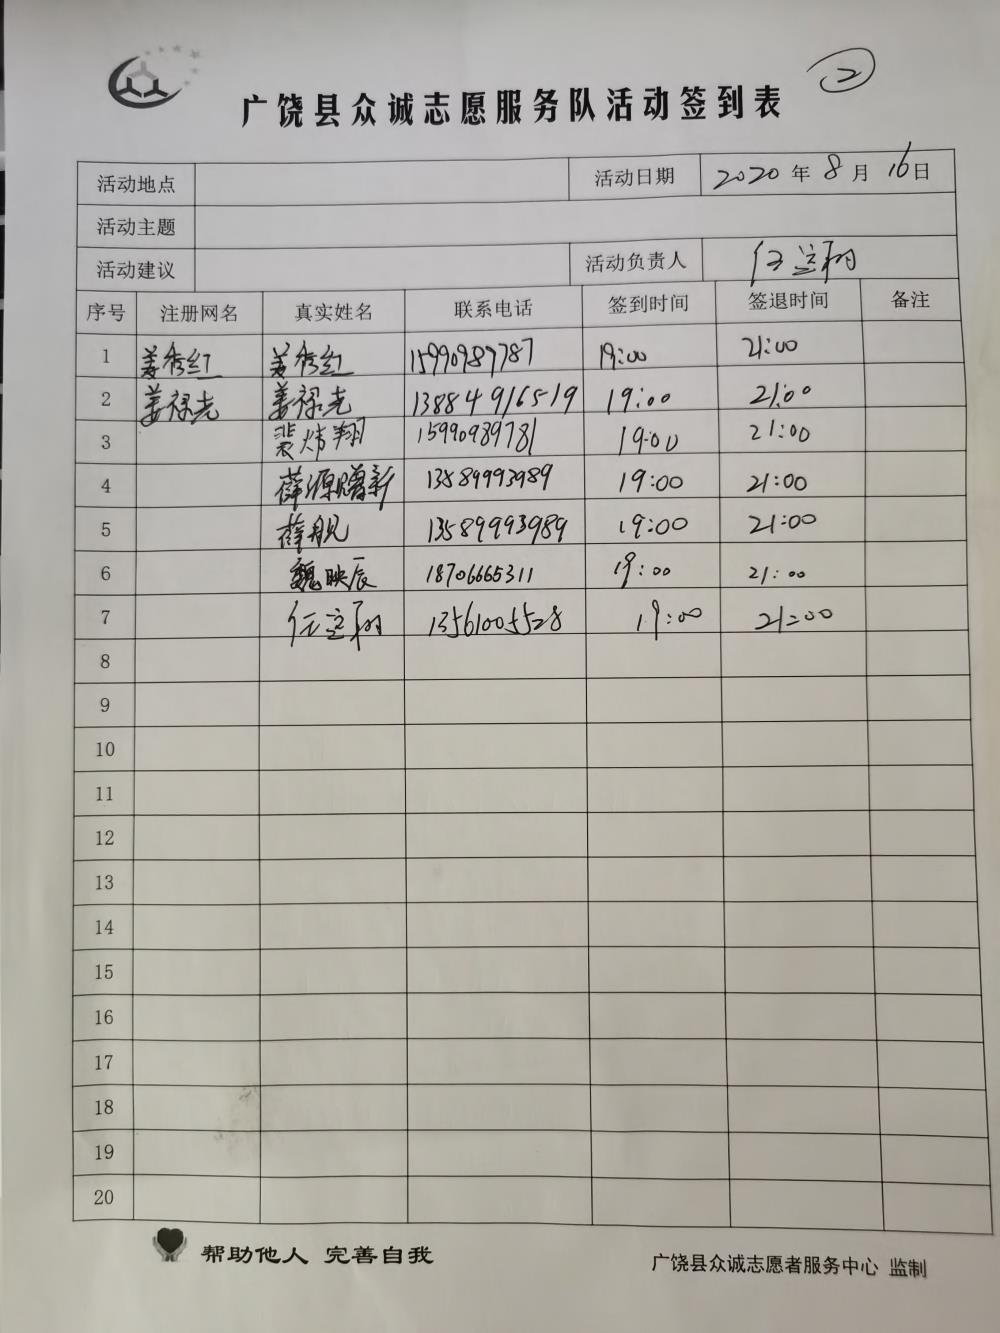 ②
广饶县众诚志愿服务队活动签到表
活动地点 活动日期 2020 年 8 月 16 日
活动主题
活动建议 活动负责人 任空翔
序号 注册网名 真实姓名 联系电话 签到时间 签退时间 备注
1 姜秀红 姜秀红 15990989787 19:00 21:00
2 姜禄尧 姜禄尧 13884916519 19:00 21:00
3 裴炜翔 15990989781 19:00 21:00
4 薛源 13589993989 19:00 21:00
5 薛舰 13589993989 19:00 21:00
6 魏映辰 18706665311 19:00 21:00
7 任空翔 13561005528 19:00 21:00
8
9
10
11
12
13
14
15
16
17
18
19
20
帮助他人 完善自我
广饶县众诚志愿者服务中心 监制